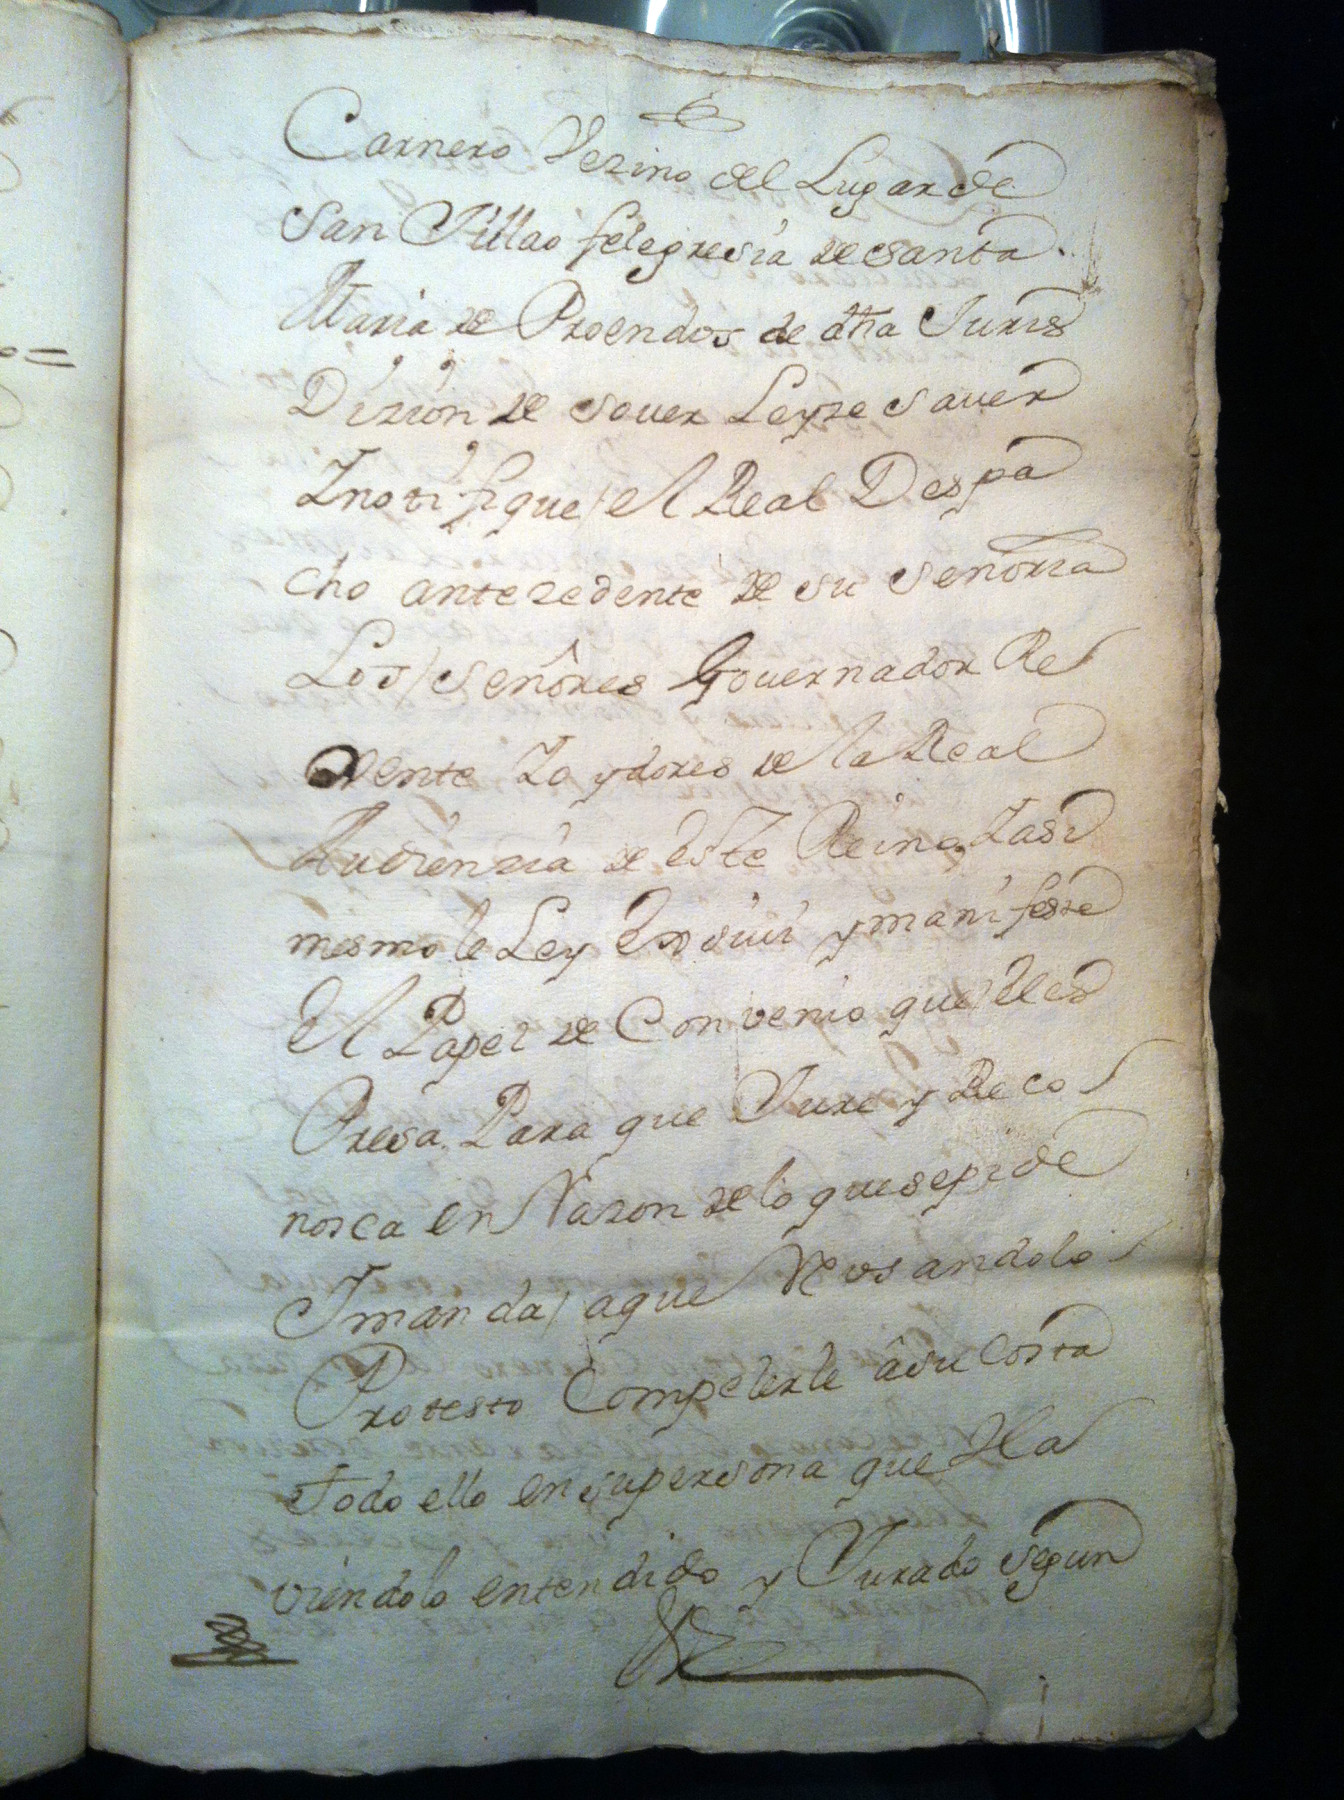 Carnero Vezino del Lugar de
San Jillao felegresia de santa
Maria de Proendos de dha Juris
Dizion de sover Ley ze saver
Inotifique el Real Despa
cho antezedente de su señoria
Los señores Governador Re
Jente Ioydores de la Real
Audienzia de este Reino Iasi
mesmo le Ley Ensivi y manifeste
El Papel de Convenio que el es
Presa Para que Jure y Reco
nosca en Razon de lo que se pide
Imanda aque Reusandolo
Protesto Compelerle âsu costa
todo ello ensupersona que Ha
viendolo entendido y Jurado segun